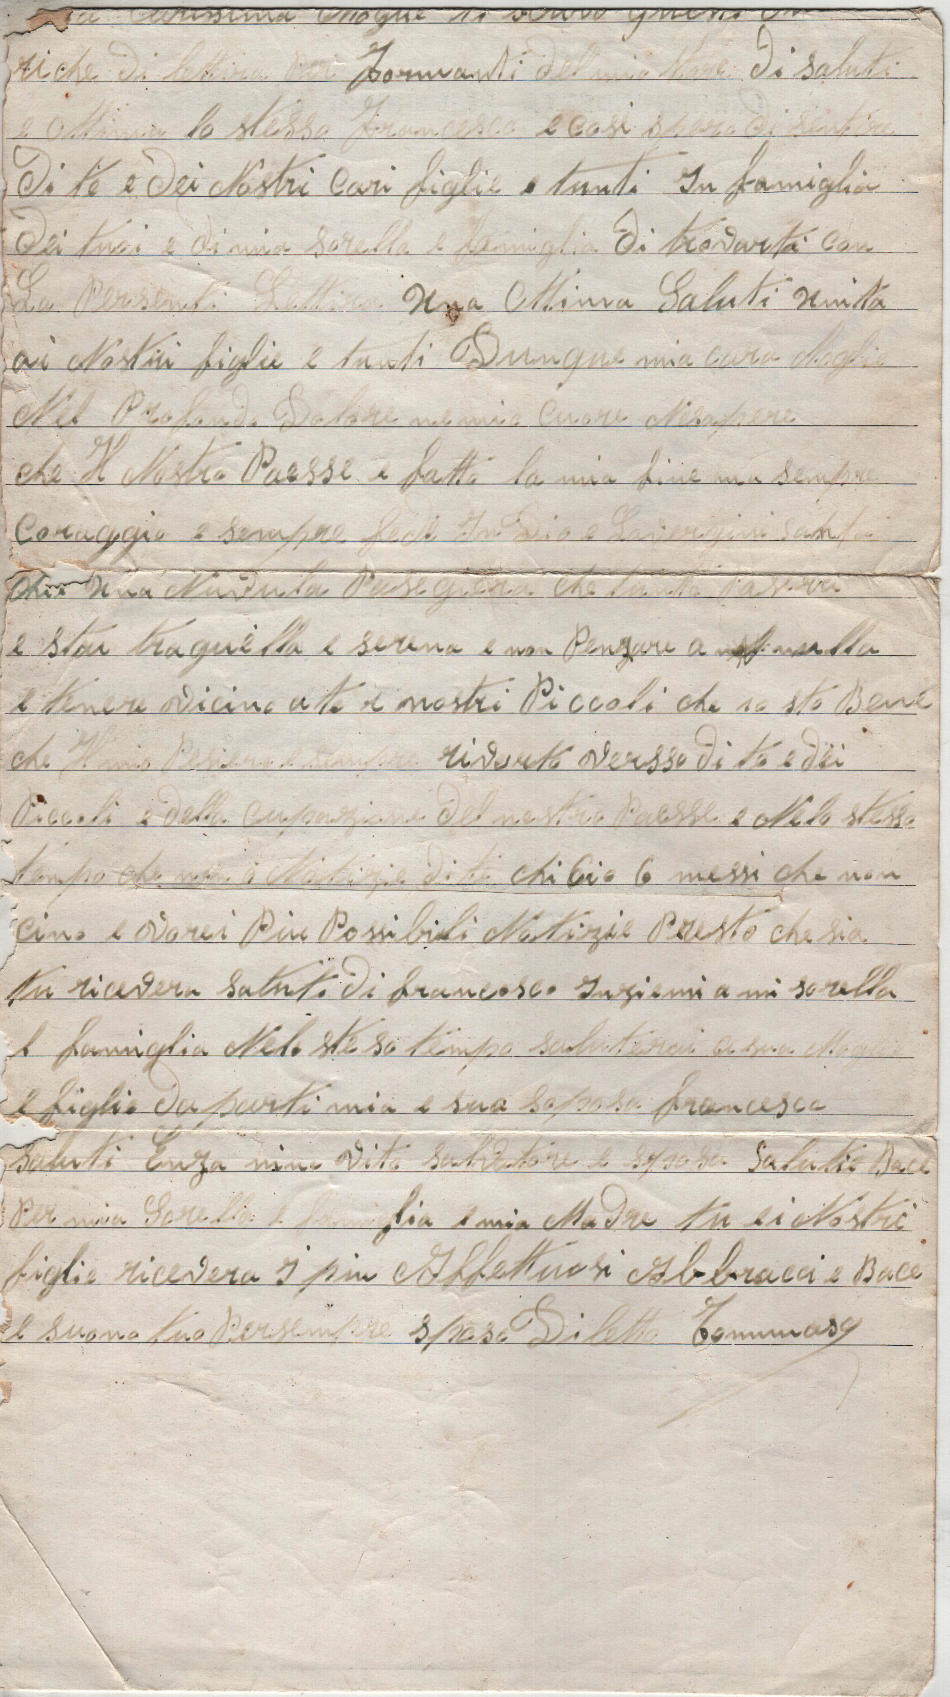 Carissima Moglie ti scrivo questi
riche di lettira per Formanti del mio stare di saluti
e ottima lo stesso Francesco e così spero di sentire
Di te e dei Nostri Cari figlie e tanti In famiglia
Dei tuoi e di mia sorella e famiglia Di trovarti con
La Persenti Lettira una Ottima Saluti unita
ai Nostri figlie e tanti Dunque mia cara Moglie
Nel Profondo Dolore nemio Cuore Nesapere
che Il Nostro Paesse e fatto la mia fine ma sempre
Coraggio e sempre fede In Dio e Lavergini santa
una Nuvula Pasegiera che tanto
e stai traquilla e serena e non Penzare a nulla
e tenere vicino a te e nostri Piccoli che io sto Bene
che Il mio Pesiero e sempre rivorto versso di te e dei
Piccoli e della cupazione del nostro Paesse e Nelo stesso
tempo che non o Notizie di te chi Cio 6 messi che non
Cino e vorei Piu Possibili Notizie Presto che sia
tu ricevera saluto Di francesco Inziemi a mi sorella
e famiglia Nelo steso tempo saluterai a sua Moglie
e figlio da parti mia e sua soposa francesca
saluti Enza nino vito salvatore e sposa Salutie Bace
Per mia Sorella e famiglia e mia Madre tu ei Nostri
figlie ricevera I piu Affettuosi Abbracci e Bace
e suono tuo Persempre sposo Diletto Tommaso